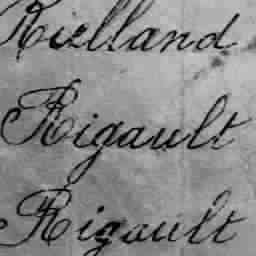 Ruelland
Rigault
Rigault